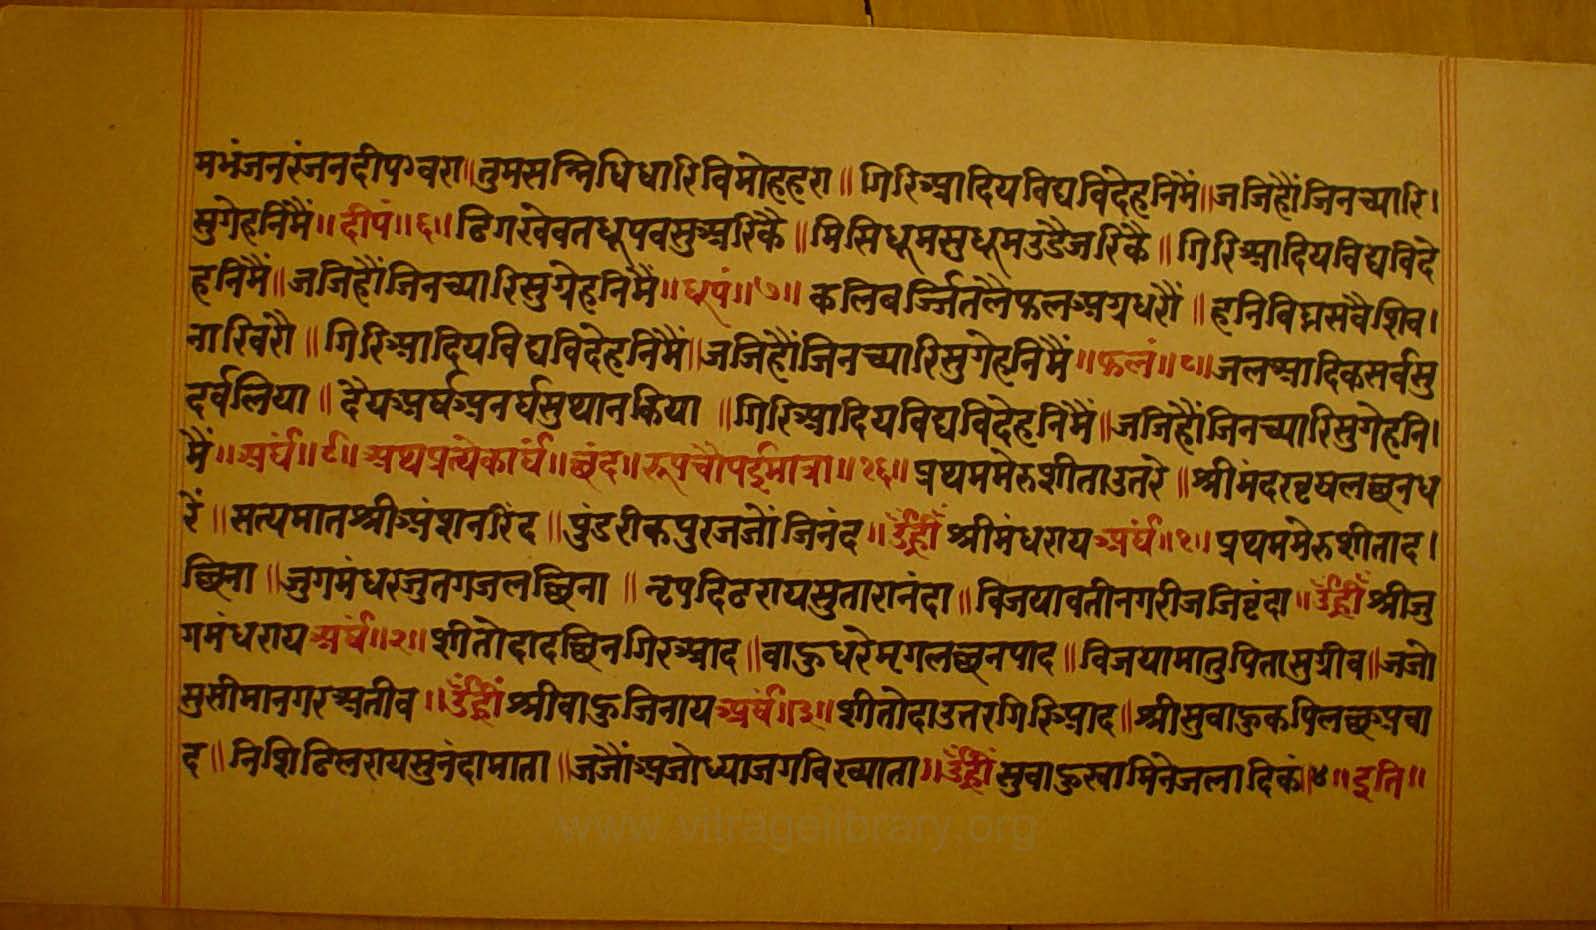 मभंजनरंजनदीपवरा॥तुमसन्निधिधारिविमोहहरा॥गिरिआदियविद्यविदेहनिमैं॥जजिहौंजिनच्यारि।
सुगेहनिमैं॥दीपं॥६॥ढिगखेवतधूपवसुअरिकै॥मिसिधूमसुधूमउडैजरिकै॥गिरिआदियविद्यविदे
हनिमैं॥जजिहौंजिनच्यारिसुगेहनिमैं॥धूपं॥७॥कलिबर्ज्जितलैफलअग्रधरौं॥हनिविघ्नसवैशिव।
नारिवरौ॥गिरिआदियविद्यविदेहनिमैं॥जजिहौंजिनच्यारिसुगेहनिमैं॥फलं॥८॥जलआदिकसर्वसु
दर्वलिया॥दैयअर्घअनर्घसुथानकिया॥गिरिआदियविद्यविदेहनिमैं॥जजिहौंजिनच्यारिसुगेहनि।
मैं॥अर्घं॥९॥अथप्रत्येकार्घं॥छंद॥रूपचौपईमात्रा॥१६॥प्रथममेरुशीताउतरे॥श्रीमंदरवृषलछनध
रें॥सत्यमातश्रीअंशनरिंद॥पुंडरीकपुरजजोंजिनंद॥उँह्रीँश्रीमंधरायअर्घं॥१॥प्रथममेरुशीताद।
छिना॥जुगमंधरजुतगजलछिना॥नृपदिढरायसुतारानंदा॥विजयावतीनगरीजजिवृंदा॥उँह्रीँश्रीजु
गमंधरायअर्घं॥२॥शीतोदादछिनगिरआद॥वाहुधरेमृगलछनपाद॥विजयामातुपितासुग्रीव॥जजो
सुसीमानगरअतीव॥उँह्रीँश्रीवाहुजिनायअर्घं॥३॥शीतोदाउत्तरगिरिआद॥श्रीसुवाहुकपिलछअवा
द॥निशिढिलरायसुनंदामाता॥जजौंअजोध्याजगविख्याता॥उँह्रीँसुवाहुस्वामिनेजलादिकं॥४॥इति॥
www.vitragelibrary.org